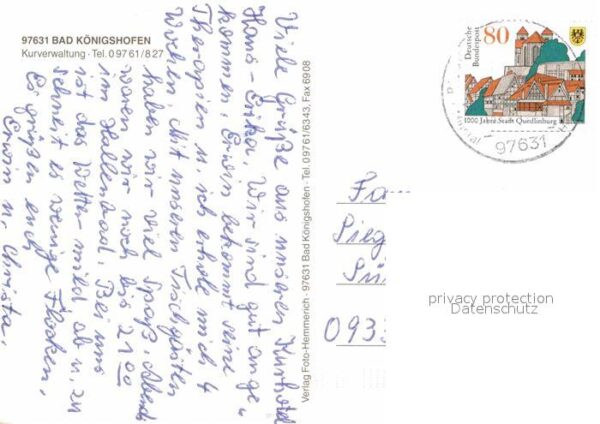 97631 BAD KÖNIGSHOFEN
Kurverwaltung · Tel. 0 97 61 / 8 27
Viele Grüße aus unserem Kurhotel
Hans-Erika. Wir sind gut ange-
kommen. Erwin bekommt seine
Therapien u. ich erhole mich 4
Wochen. Mit unseren Tischgästen
haben wir viel Spaß. Abends
waren wir noch bis 21 00
im Hallenbad. Bei uns
ist das Wetter mild ab u. zu
schneit es wenige Flocken.
Es grüßen euch
Erwin u. Christa.
Verlag Foto-Hemmerich · 97631 Bad Königshofen · Tel. 0 97 61/6343, Fax 6908
Deutsche
Bundespost
80
1000 Jahre Stadt Quedlinburg
97631
Fa
Sieg
093
privacy protection
Datenschutz